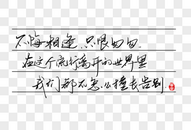 不悔相逢 只恨匆匆
在这个流行离开的世界里
我们都不怎么擅长告别